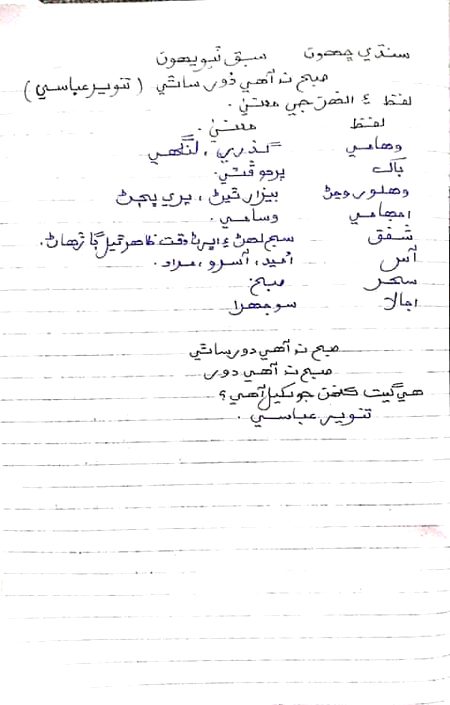 سنڌي ڇهون سبق نيويهون
صبح نہ آهي ڏور ساٿي (تنوير عباسي)
لفظ ۽ انهن جي معنيٰ.
لفظ معنيٰ.
وهامي گذري، لنگهي
باک پرهه ڦٽي.
وهلور وڃڻ بيزار ٿيڻ، پري ڀڄڻ
اجهامي وسامي.
شفق سج لهڻ ۽ اڀرڻ وقت ظاهر ٿيل ڳاڙهاڻ.
آس اُميد، آسرو، مراد.
سحر صبح
اجالا سوجهرا
صبح نہ آهي دور ساٿي
صبح نہ آهي دور
هي گيت ڪنهن جو لکيل آهي؟
تنوير عباسي.